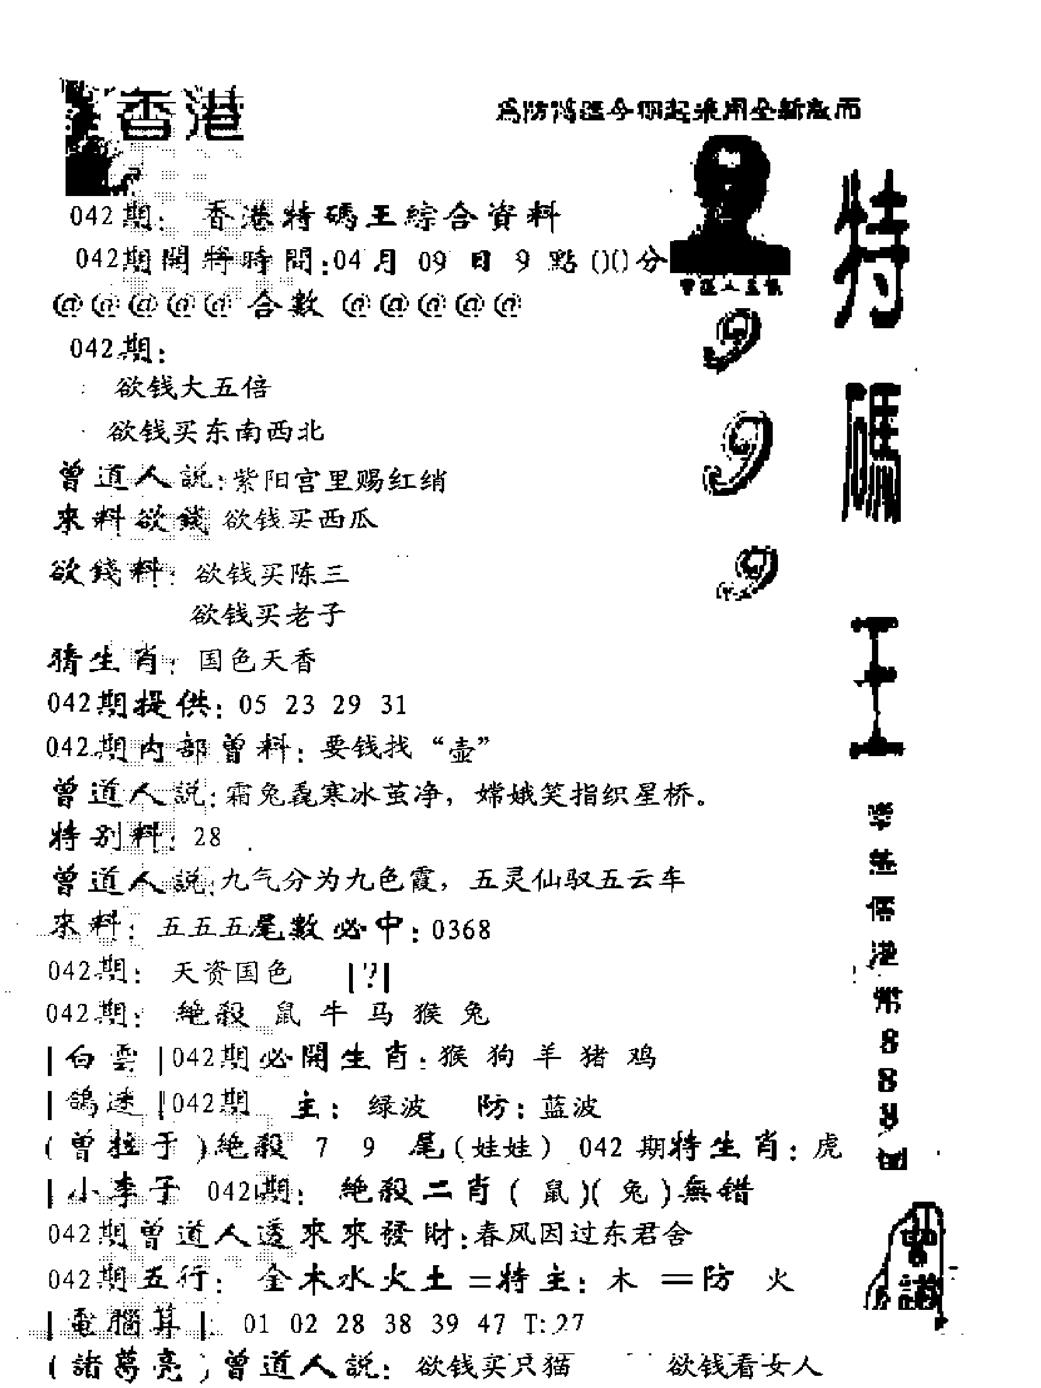 香港
042期: 香港特碼王綜合資料
042期開將時間:04月 09 日 9 點()()分
@@@@@ 合數 @@@@@
042期:
欲钱大五倍
欲钱买东南西北
曾道人説:紫阳宫里赐红绡
來料欲錢 欲钱买西瓜
欲錢料: 欲钱买陈三
欲钱买老子
猜生肖: 国色天香
042期提供: 05 23 29 31
042期内部曾料: 要钱找“壶”
曾道人説:霜兔毳寒冰茧净，嫦娥笑指织星桥。
特别料: 28
曾道人説:九气分为九色霞，五灵仙驭五云车
來料: 五五五尾數必中: 0368
042期: 天资国色 |?|
042期: 绝殺 鼠 牛 马 猴 兔
|白雲|042期必開生肖: 猴 狗 羊 猪 鸡
|鴿迷|042期 主: 绿波 防: 蓝波
(曾拄于)绝殺 7 9 尾(娃娃) 042期特生肖: 虎
|小李子 042期: 绝殺二肖(鼠)(兔)無错
042期曾道人透來來發財:春风因过东君舍
042期五行: 金木水火土=特主: 木 =防 火
|電腦算| 01 02 28 38 39 47 T:27
(諸葛亮)曾道人説: 欲钱买只猫 欲钱看女人
999
特碼王
港幣888